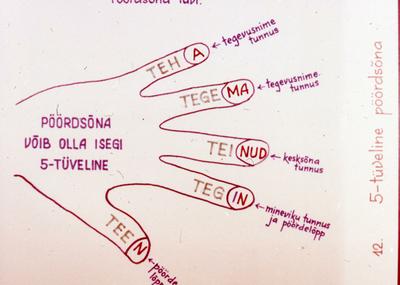 TEHA
← tegevusnime
tunnus
TEGEMA
← tegevusnime
tunnus
PÖÖRDSÕNA
VÕIB OLLA ISEGI
5-TÜVELINE
TEINUD
← kesksõna
tunnus
TEGIN
← mineviku tunnus
ja pöördelõpp
TEEN
12. 5-tüveline pöördsõna